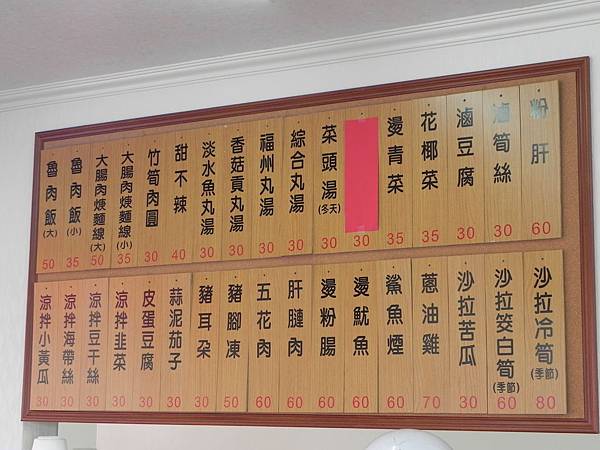 粉肝 60
滷筍絲 30
滷豆腐 30
花椰菜 35
燙青菜 35
30
菜頭湯(冬天) 30
綜合丸湯 30
福州丸湯 30
香菇貢丸湯 30
淡水魚丸湯 30
甜不辣 40
竹筍肉圓 30
大腸肉焿麵線(小) 35
大腸肉焿麵線(大) 50
魯肉飯(小) 35
魯肉飯(大) 50
沙拉冷筍(季節) 80
沙拉筊白筍(季節) 60
沙拉苦瓜 30
蔥油雞 70
鯊魚煙 60
燙魷魚 60
燙粉腸 60
肝腱肉 60
五花肉 60
豬腳凍 50
豬耳朵 30
蒜泥茄子 30
皮蛋豆腐 30
涼拌韭菜 30
涼拌豆干絲 30
涼拌海帶絲 30
涼拌小黃瓜 30